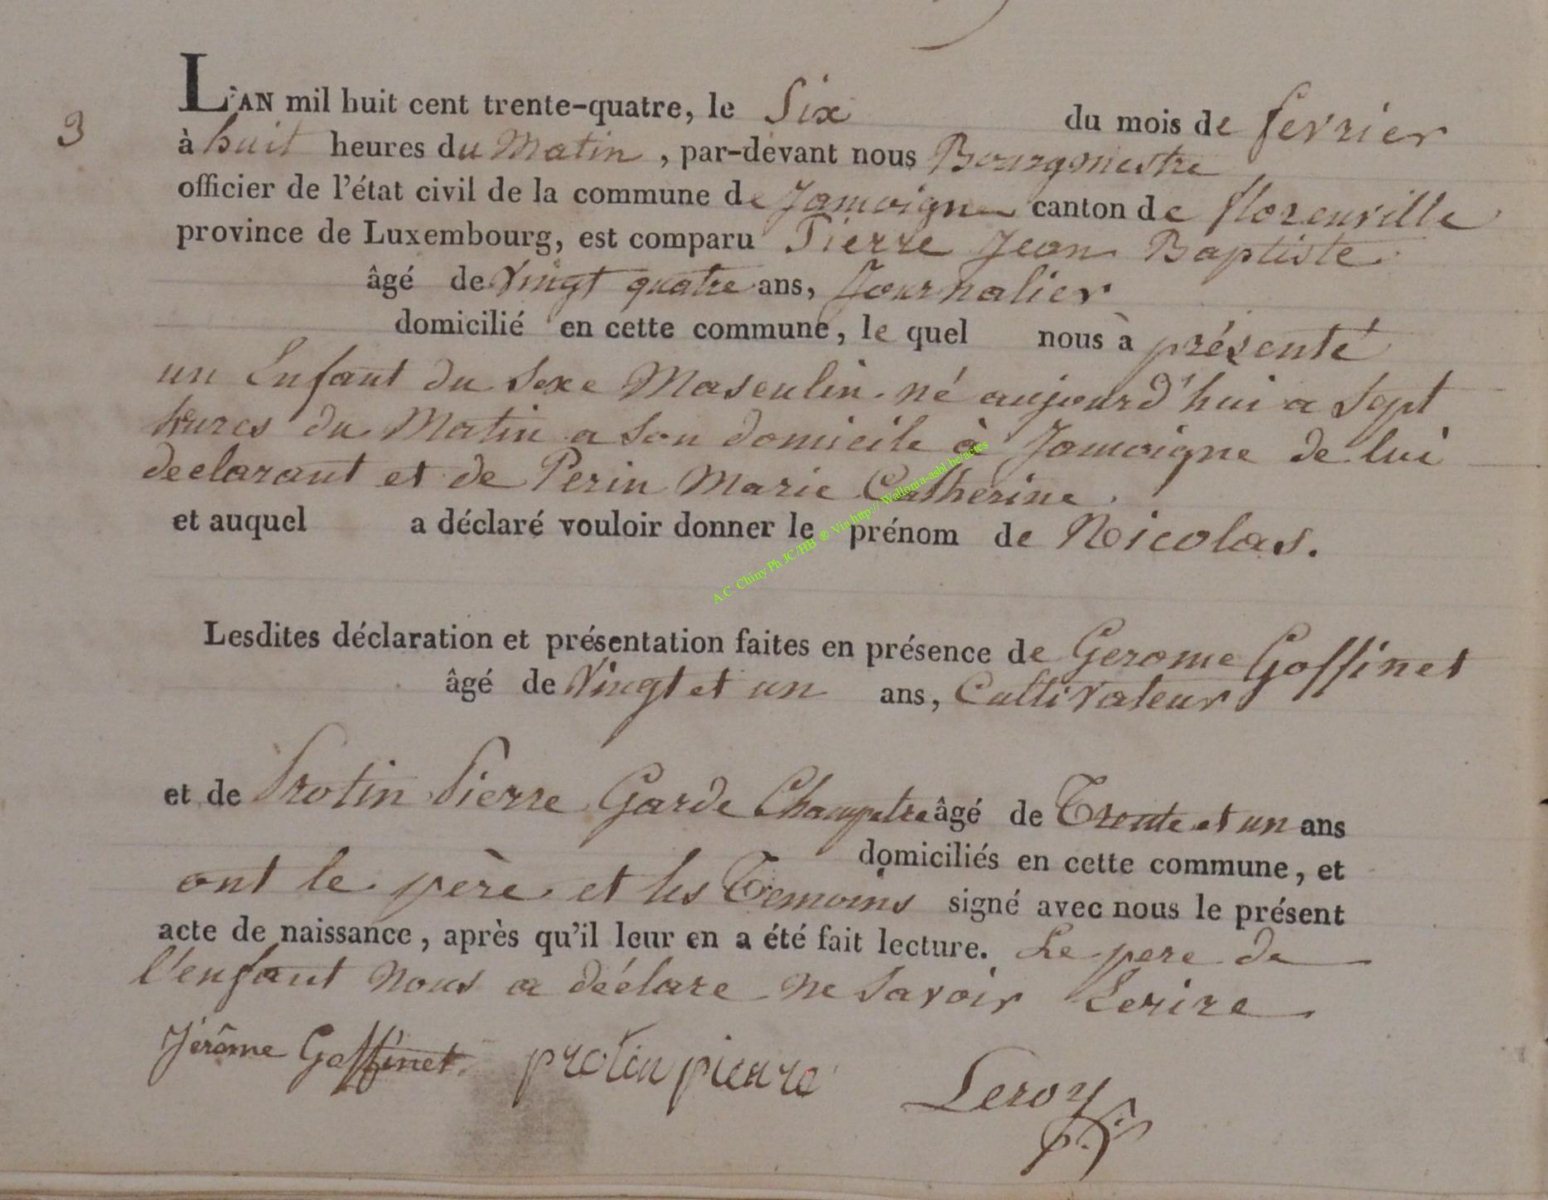 3
L'AN mil huit cent trente-quatre, le Six du mois de fevrier
à huit heures du Matin, par-devant nous Bourgmestre
officier de l'état civil de la commune de Jamoigne canton de florenville
province de Luxembourg, est comparu Pierre Jean Baptiste
âgé de Vingt quatre ans, Journalier
domicilié en cette commune, le quel nous à présenté
un Enfant du Sexe Masculin né aujourd'hui a Sept
heures du Matin a Son domicile à Jamoigne de lui
declarant et de Perin Marie Catherine.
et auquel a déclaré vouloir donner le prénom de Nicolas.
A.C. Chiny Ph JC/HB ® Via http://Wallonia-asbl.be/actes
Lesdites déclaration et présentation faites en présence de Gerome Goffinet
âgé de Vingt et un ans, Cultivateur
et de Protin Pierre Garde Champetre âgé de Trente et un ans
domiciliés en cette commune, et
ont le père et les Temoins signé avec nous le présent
acte de naissance, après qu'il leur en a été fait lecture. Le pere de
l'enfant nous a déclare ne Savoir Ecrire
Jérôme Goffinet protin pierre Leroy